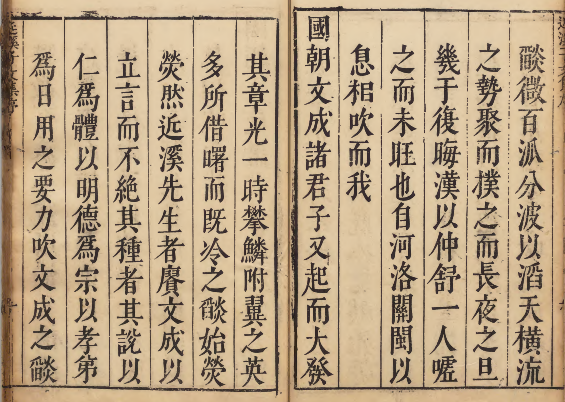 燄微百泒分波以滔天橫流
之勢聚而撲之而長夜之旦
幾于復晦漢以仲舒一人噓
之而未旺也自河洛關閩以
息相吹而我
國朝文成諸君子又起而大發
其章光一時攀鱗附翼之英
多所借曙而既冷之燄始熒
熒然近溪先生者賡文成以
立言而不絕其種者其說以
仁爲體以明德爲宗以孝弟
爲日用之要力吹文成之燄